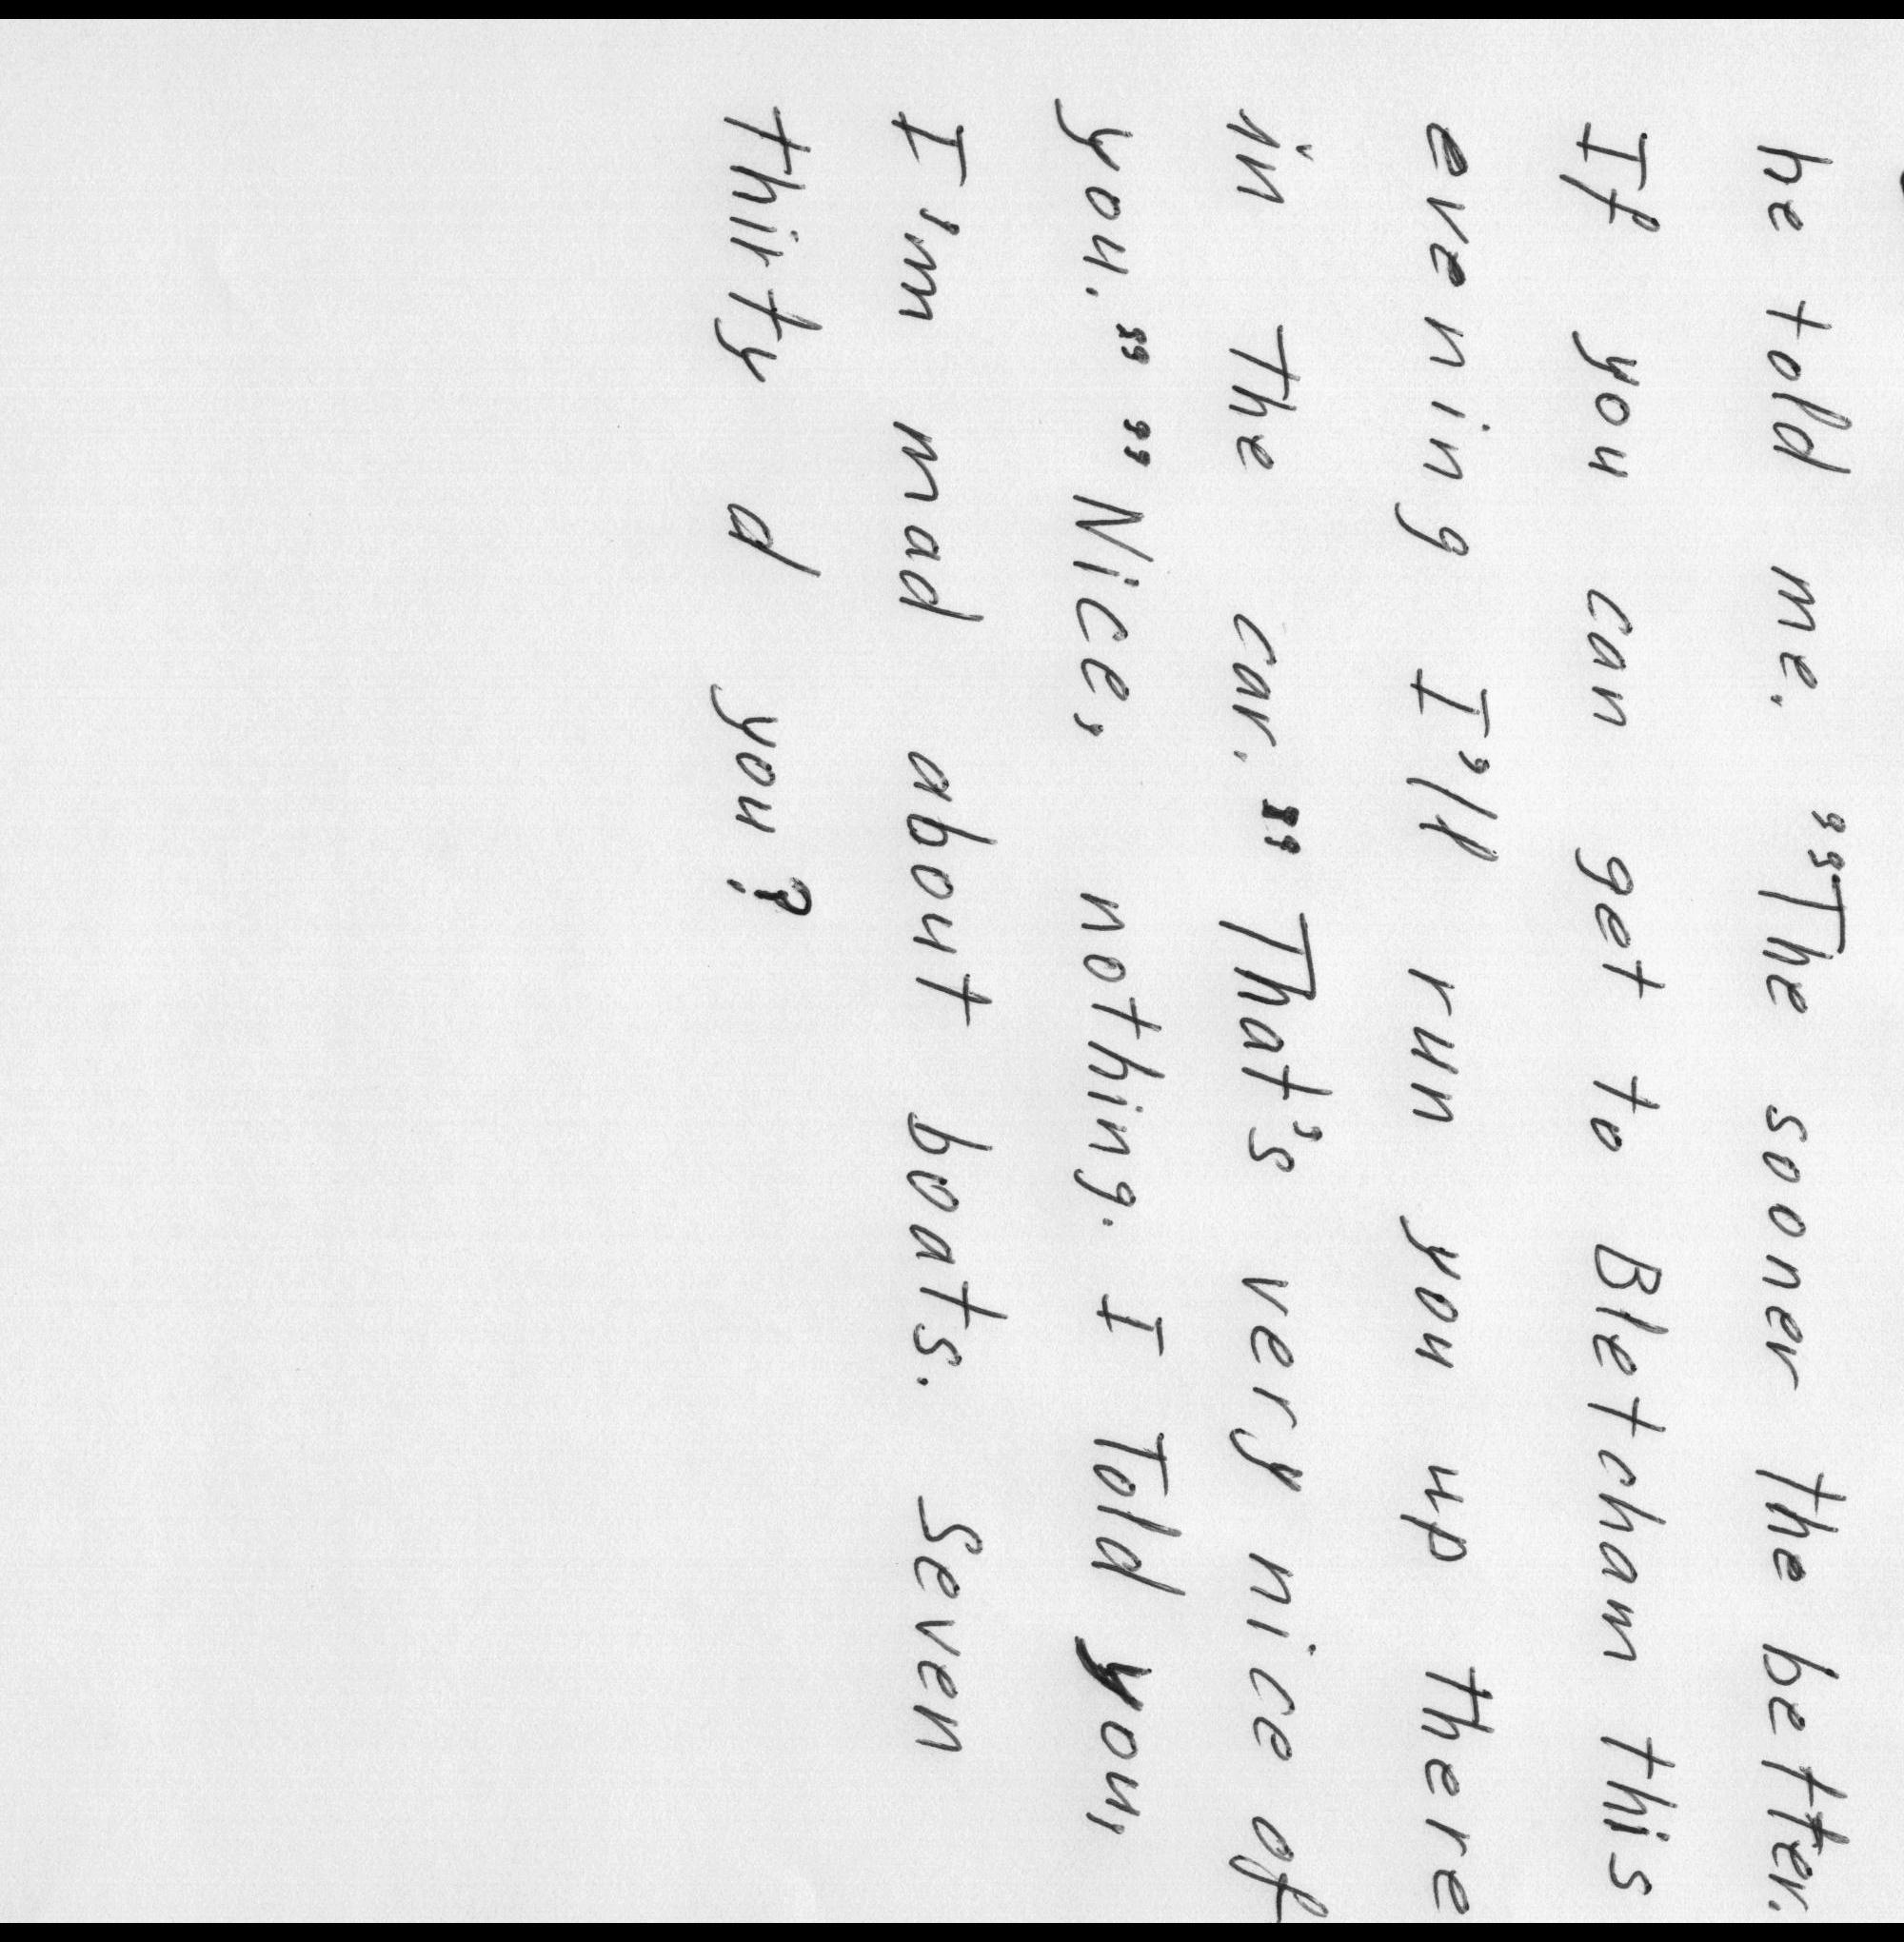 he told me. "The sooner the better.
If you can get to Bletcham this
evening I'll run you up there
in the car." That's very nice of
you." "Nice, nothing. I Told you,
I'm mad about boats. Seven
thirty d you?